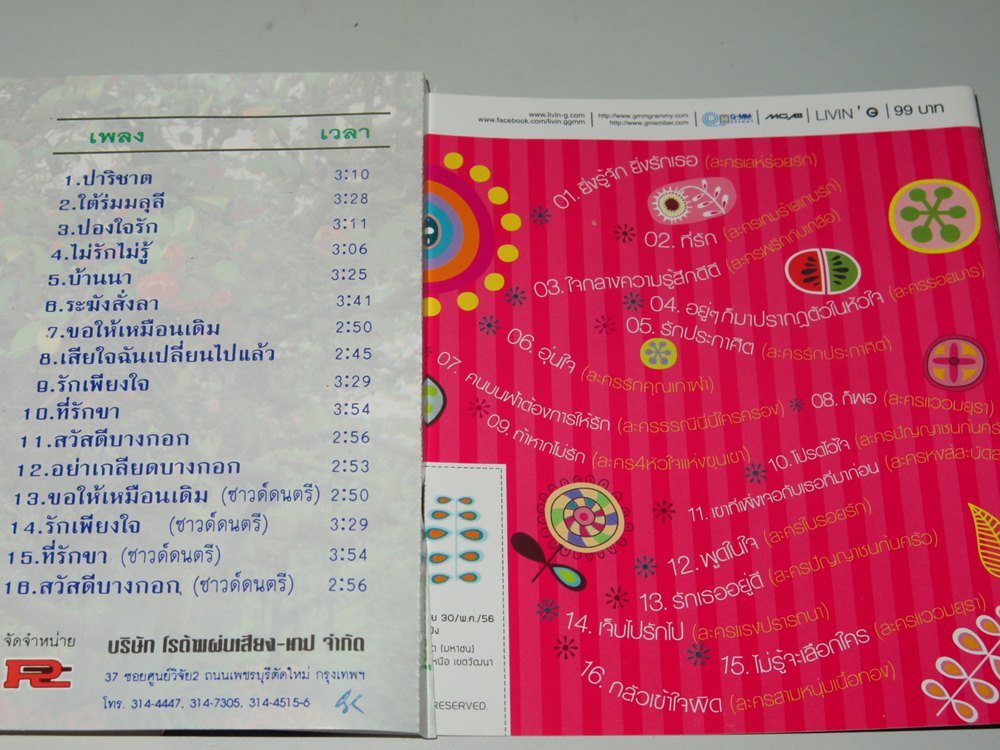 เพลง เวลา
1.ปาริชาต 3:10
2.ใต้ร่มมลุลี 3:28
3.ปองใจรัก 3:11
4.ไม่รักไม่รู้ 3:06
5.บ้านนา 3:25
6.ระฆังสั่งลา 3:41
7.ขอให้เหมือนเดิม 2:50
8.เสียใจฉันเปลี่ยนไปแล้ว 2:45
9.รักเพียงใจ 3:29
10.ที่รักขา 3:54
11.สวัสดีบางกอก 2:56
12.อย่าเกลียดบางกอก 2:53
13.ขอให้เหมือนเดิม (ซาวด์ดนตรี) 2:50
14.รักเพียงใจ (ซาวด์ดนตรี) 3:29
15.ที่รักขา (ซาวด์ดนตรี) 3:54
16.สวัสดีบางกอก (ซาวด์ดนตรี) 2:56
จัดจำหน่าย
บริษัท โรต้าแผ่นเสียง-เทป จำกัด
37 ซอยศูนย์วิจัย2 ถนนเพชรบุรีตัดใหม่ กรุงเทพฯ
โทร. 314-4447, 314-7305, 314-4515-6
www.livin-g.com
www.facebook.com/livin.ggmm
http://www.gmmgrammy.com
http://www.gmember.com
LIVIN' G
99 บาท
01. ยิ่งรู้จัก ยิ่งรักเธอ (ละครเล่ห์รอยรัก)
02. ที่รัก (ละครเกมร้ายเกมรัก)
03. ใจกลางความรู้สึกดีดี (ละครพริกกับเกลือ)
04. อยู่ๆ ก็มาปรากฏตัวในหัวใจ (ละครรอยมาร)
05. รักประกาศิต (ละครรักประกาศิต)
06. อุ่นใจ (ละครรักคุณเท่าฟ้า)
07. คนบนฟ้าต้องการให้รัก (ละครธรณีนี่นี้ใครครอง)
08. ก็พอ (ละครแววมยุรา)
09. ถ้าหากไม่รัก (ละคร4หัวใจแห่งขุนเขา)
10. โปรดไว้ใจ (ละครปัญญาชนก้นครัว
11. เขาที่เพิ่งเจอกับเธอที่มาก่อน (ละครหงส์สะบัดล
12. พูดในใจ (ละครในรอยรัก)
13. รักเธออยู่ดี (ละครปัญญาชนก้นครัว)
14. เจ็บไปรักไป (ละครแรงปรารถนา)
15. ไม่รู้จะเลือกใคร (ละครแววมยุรา)
16. กลัวเข้าใจผิด (ละครสามหนุ่มเนื้อทอง)
30/พ.ค./56
(มหาชน)
เขตวัฒนา
RESERVED.